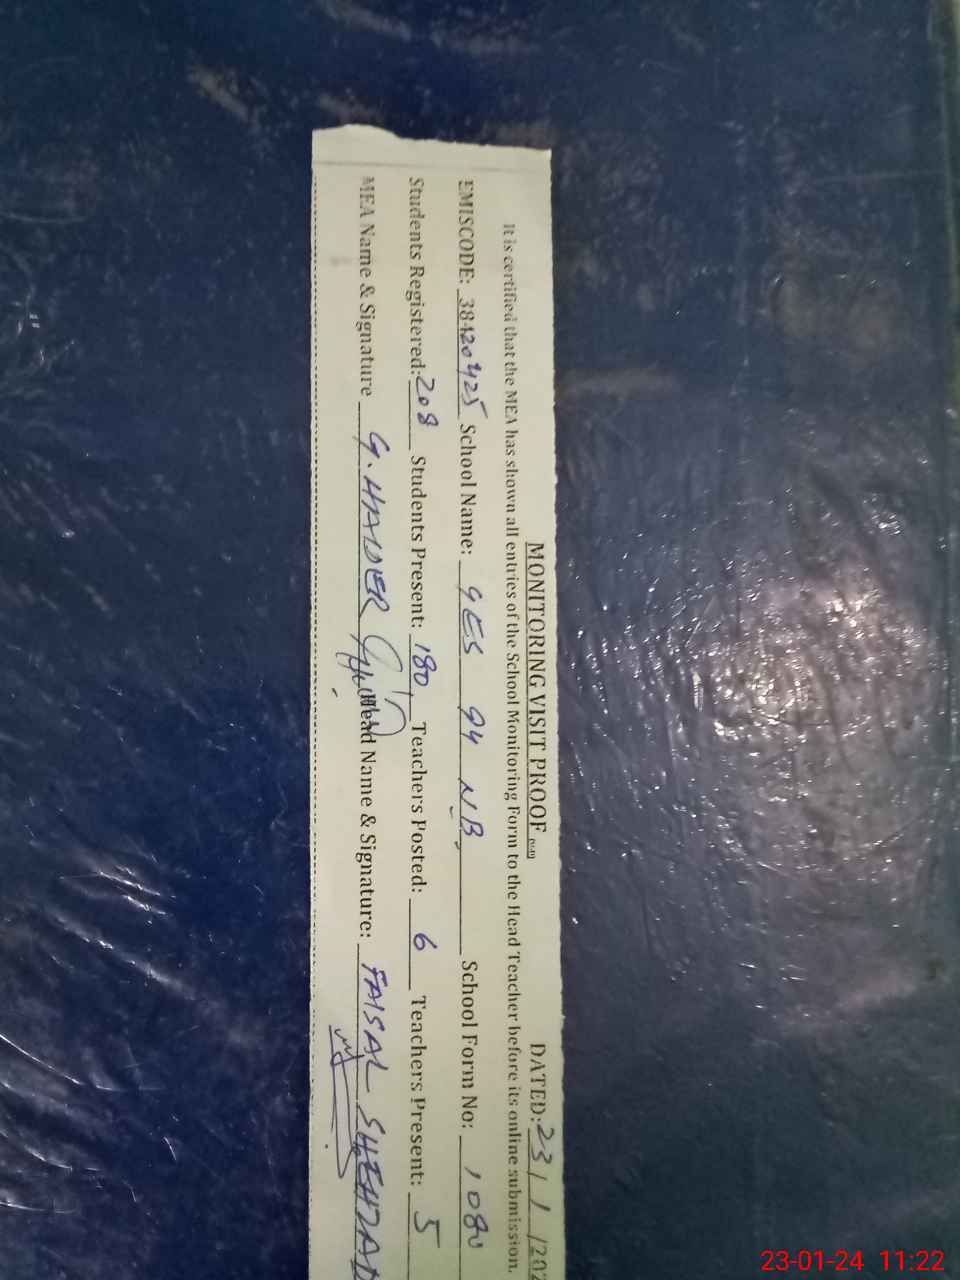 MONITORING VISIT PROOF DATED: 23/1/202
It is certified that the MEA has shown all entries of the School Monitoring Form to the Head Teacher before its online submission.
EMISCODE: 38420425 School Name: GES 94 NB School Form No: 1080
Students Registered: 208 Students Present: 180 Teachers Posted: 6 Teachers Present: 5
MEA Name & Signature G. HAIDER Head Name & Signature: FAISAL SHEHZAD
23-01-24 11:22